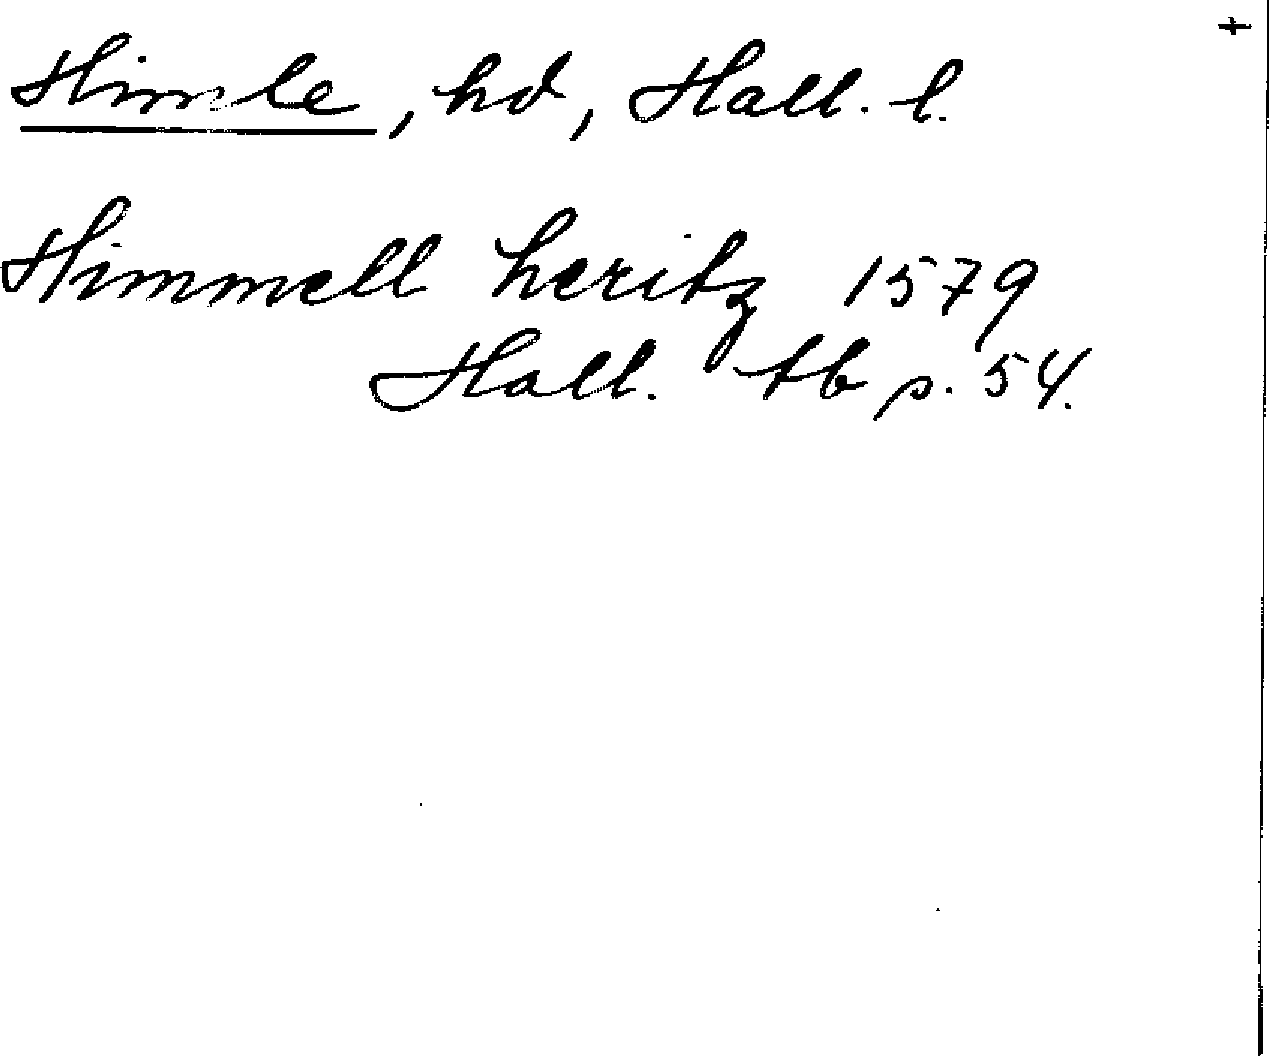 Himle, hd, Hall. l.
Himmell heritz 1579
Hall. tb p. 54.